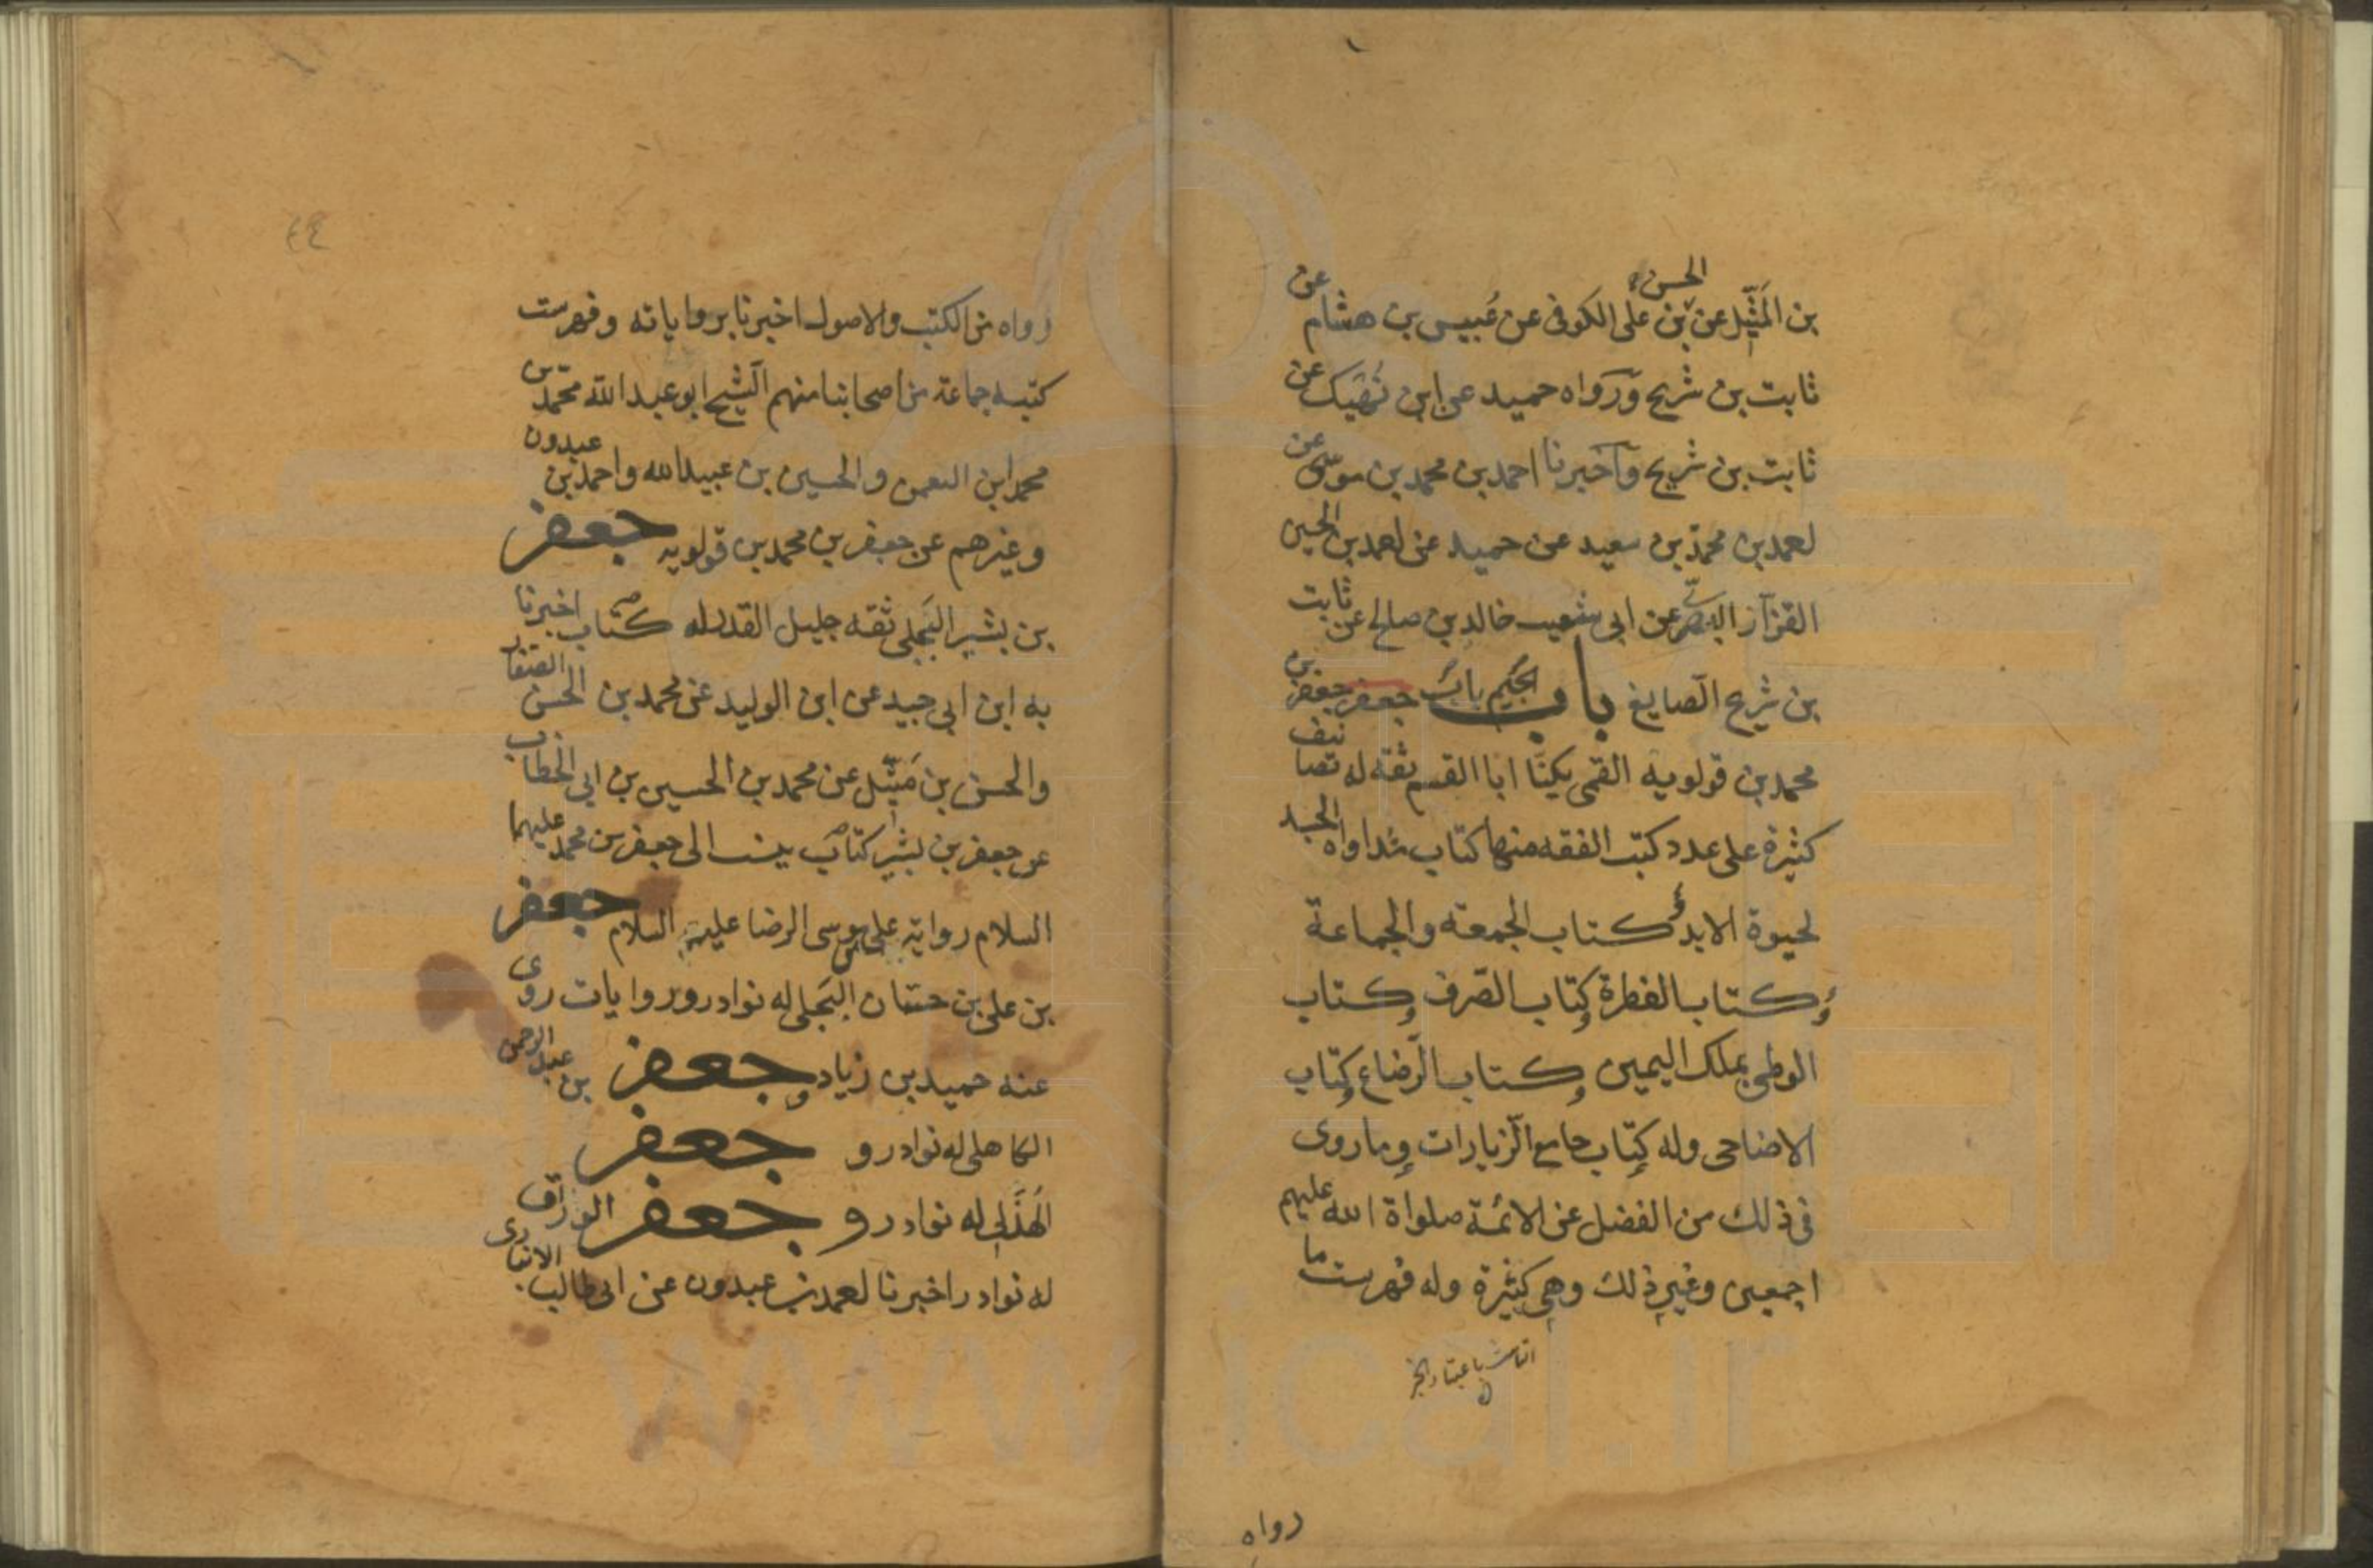 بن المَثِّيل عن الحسن بن على الكوفى عن عُبيس بن هشام عن
ثابت بن شريح وَرَواه حميد عن ابن نُهَيك عن
ثابت بن شريح وَاخبرنا احمد بن محمد بن موسى عن
احمد بن محمّد بن سعيد عن حميد عن احمد بن الحسين
القزّاز البصرىّ عن ابى شعيب خالد بن صالح عن ثابت
بن شريح الصّايغ باب الجيم باب جعفر جعفر بن
محمد بن قولويه القمى يكنّا ابا القسم ثقة له تصانيف
كثيرة على عدد كتب الفقه منها كتاب مُداواة الجسد
لحيوة الابد كتاب الجمعة والجماعة
وكتاب الفطرة وكتاب الصّرف وكتاب
الوطى بملك اليمين وكتاب الرّضاع وكتاب
الاضاحى وله كتاب جامع الزّيارات وما روى
فى ذلك من الفضل عن الائمّة صلواة الله عليهم
اجمعين وغير ذلك وهى كثيرة وله فهرست ما
رواه
٤٤
رواه من الكتب والاصول اخبرنا برواياته وفهرست
كتبه جماعة من اصحابنا منهم الشّيخ ابو عبد الله محمّد بن
محمد ابن النعمن والحسين بن عبيد الله واحمد بن عبدون
وغيرهم عن جعفر بن محمد بن قولويه جعفر
بن بشير البَجَلى ثقة جليل القدر له كتاب اخبرنا
به ابن ابى جيد عن ابن الوليد عن محمد بن الحسن الصّفار
والحسن بن مَتِّيل عن محمد بن الحسين بن ابى الخطاب
عن جعفر بن بشير كتاب ينسب الى جعفر بن محمد عليهما
السلام رواية على بن موسى الرضا عليه السلام جعفر
بن على بن حسّان البَجَلى له نوادر وروايات روى
عنه حميد بن زياد و جعفر بن عبد الرحمن
الكاهلى له نوادر و جعفر
الهُذَلى له نوادر و جعفر الورّاق
له نوادر اخبرنا احمد بن عبدون عن ابى طالب الانبارى